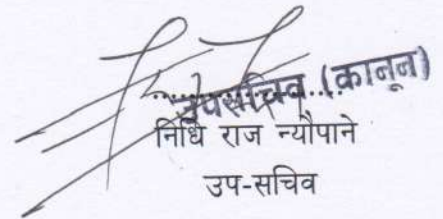 उपसचिव (कानून)
निधि राज न्यौपाने
उप-सचिव